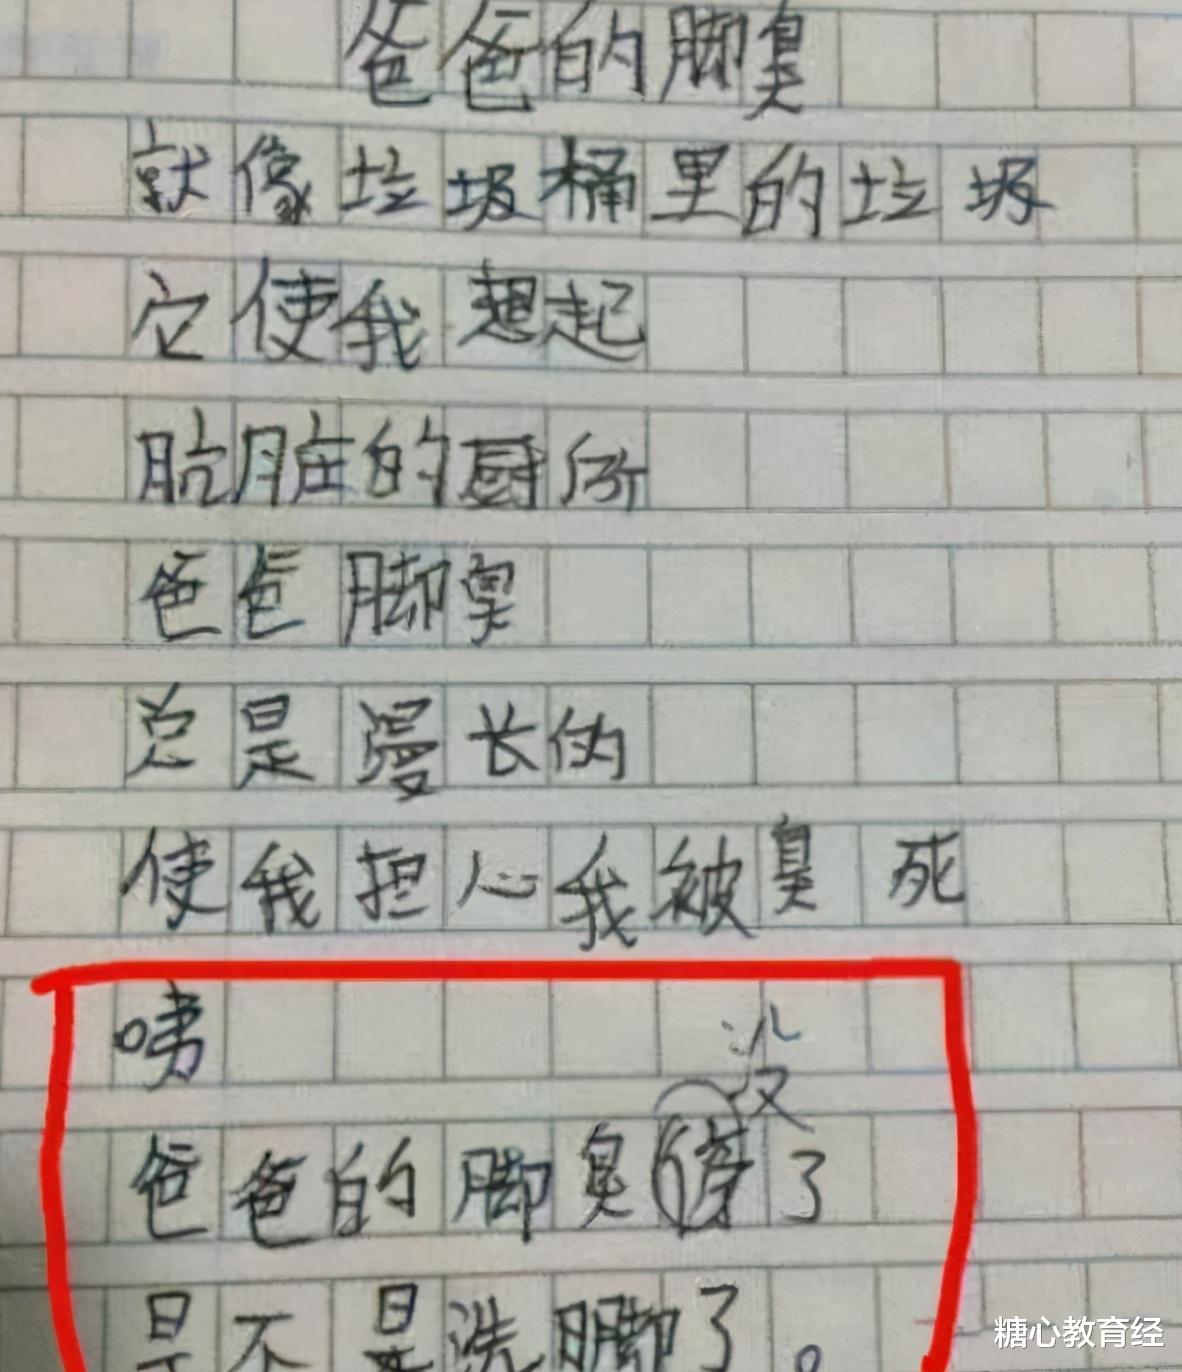 爸爸的脚臭
就像垃圾桶里的垃圾
它使我想起
肮脏的厨所
爸爸脚臭
总是漫长的
使我担心我被臭死
咦
没
爸爸的脚臭停了
是不是洗脚了。
糖心教育经